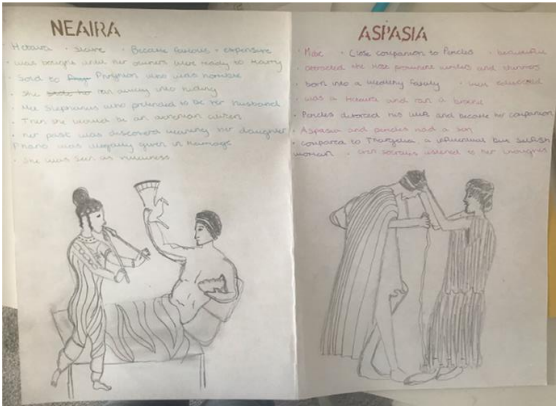 NEAIRA
Hetaira · Slave · Became famous · expensive
· was bought until her owners were ready to marry
· Sold to Phrynion who was horrible
· She ran away into hiding
· Met Stephanus who pretended to be her husband
· Then she lived as an citizen
· her past was discovered meaning her daughter
Phano was illegally given in marriage
· She was seen as
ASPASIA
· Close companion to Pericles · beautiful
· attracted the most prominent writers and thinkers
· born into a wealthy family · well educated
· was a hetaira and ran a brothel
· Pericles divorced his wife and became her companion
· Aspasia and pericles had a son
· compared to Thargelia a influential but selfish
woman · and Socrates listened to her